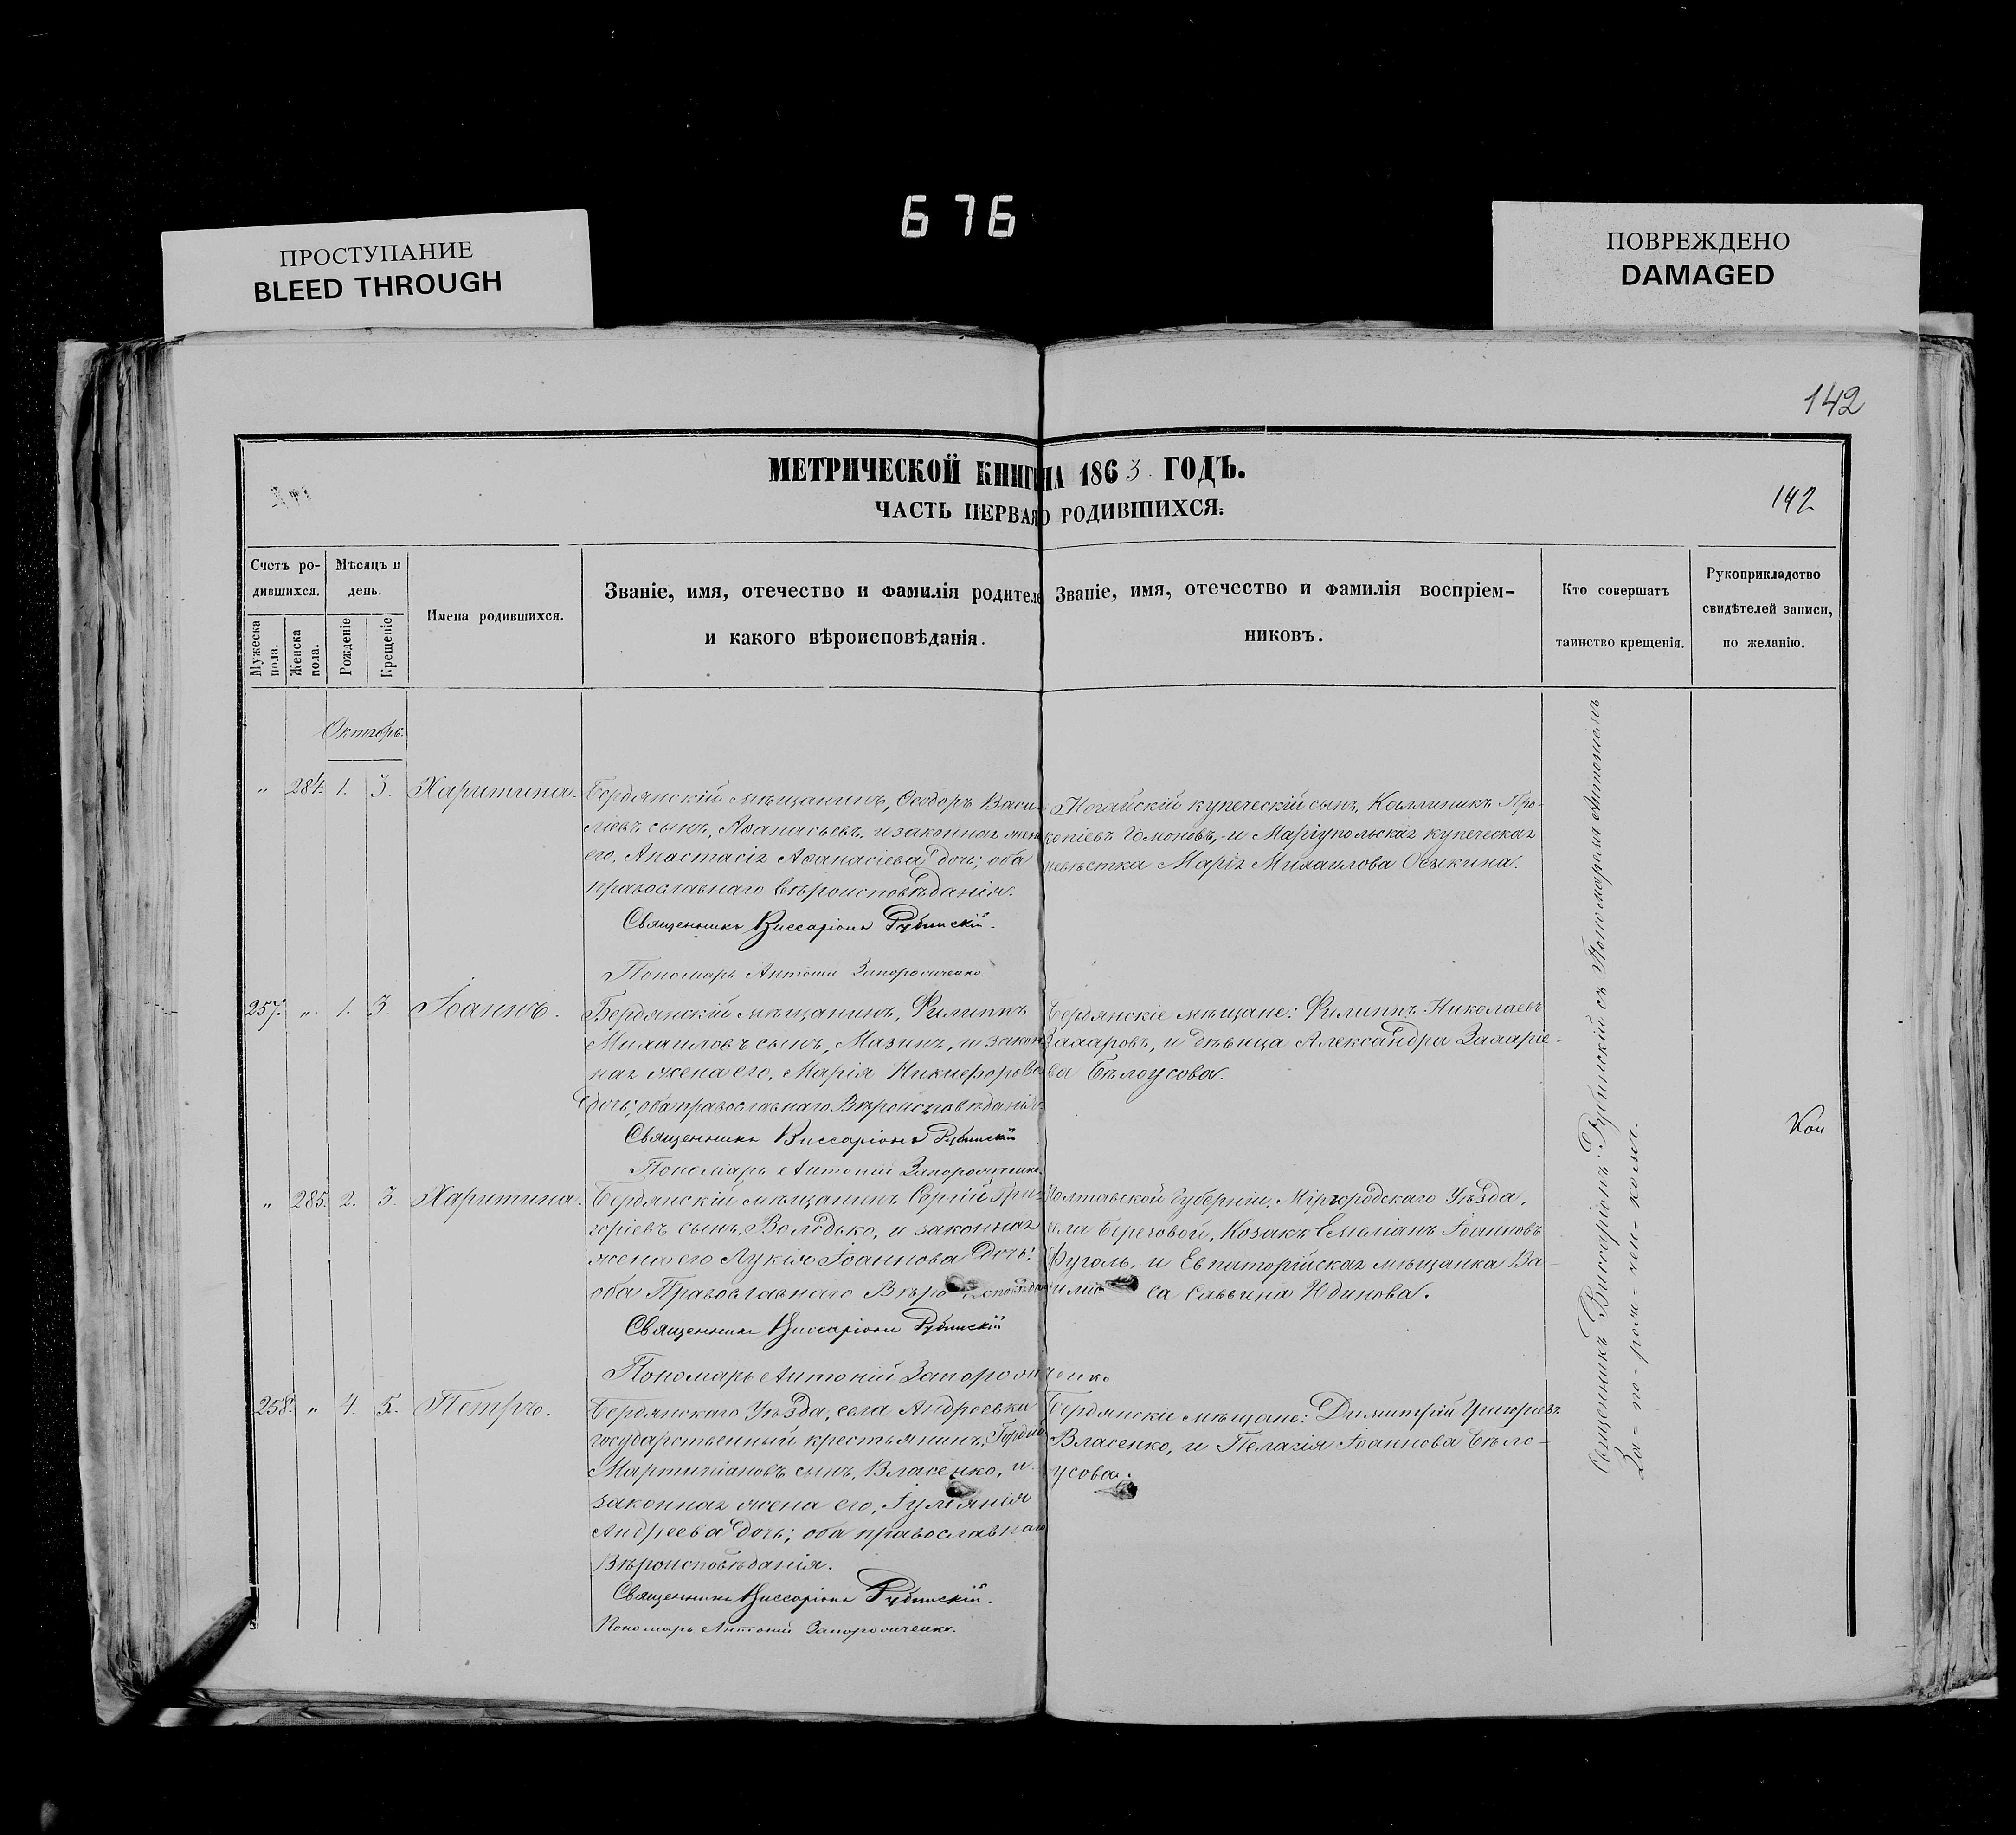 676
ПРОСТУПАНИЕ
BLEED THROUGH
ПОВРЕЖДЕНО
DAMAGED
142
МЕТРИЧЕСКОЙ КНИГ НА 1863 ГОДЪ.
142
ЧАСТЬ ПЕРВАЯ О РОДИВШИХСЯ:
Счетъ ро-
дившихся.
Мужеска
пола.
Женска
пола.
Мѣсяцъ и
день.
Рожденіе
Крещеніе
Имена родившихся.
Званіе, имя, отечество и фамилія родителе
и какого вѣроисповѣданія.
Званіе, имя, отечество и фамилія воспріем-
никовъ.
Кто совершатъ
таинство крещенія.
Рукоприкладство
свидѣтелей записи,
по желанію.
Октябрь.
" 284. 1. 3. Харитина.
Бердянскій мѣщанинъ, Ѳеодоръ Васи-
льевъ сынъ, Аѳанасьевъ, и законная жена
его, Анастасія Аѳанасіева дочь; оба
православнаго вѣроисповѣданія.
Священникъ Виссаріонъ Рубинскій.
Пономарь Антоній Запорожченко.
Ногайскій купеческій сынъ, Каллиникъ Про-
копіевъ Гомоновъ, и Маріупольская купеческая
невѣстка Марія Михаилова Осыкина.
257. " 1. 3. Іоаннъ.
Бердянскій мѣщанинъ, Филиппъ
Михаиловъ сынъ, Мазинъ, и закон
ная жена его, Марія Никифорова
дочь; оба православнаго Вѣроисповѣданія.
Священникъ Виссаріонъ Рубинскій
Пономарь Антоній Запорожченко.
Бердянскіе мѣщане: Филиппъ Николаевъ
Захаровъ, и дѣвица Александра Захаріе-
ва Бѣлоусова.
Кон
" 285. 2. 3. Харитина.
Бердянскій мѣщанинъ Сергій Гри-
горіевъ сынъ, Володько, и законная
жена его Лукія Іоаннова дочь:
оба Православнаго Вѣро исповѣдан
Священникъ Виссаріонъ Рубинскій
Пономарь Антоній Запорожченко.
Полтавской Губерніи, Міргородскаго Уѣзда,
села Береговой, Козакъ Емеліанъ Іоанновъ
Фуголь, и Евпаторійская мѣщанка Ва-
силис са Саввина Удинова.
258. " 4. 5. Петръ.
Бердянскаго Уѣзда, села Андреевки
государственный крестьянинъ, Гордій
Мартиніановъ сынъ, Власенко, и
законная жена его, Іуліанія
Андреева дочь; оба православнаго
Вѣроисповѣданія.
Священникъ Виссаріонъ Рубинскій.
Пономарь Антоній Запорожченко.
Бердянскіе мѣщане: Димитрій Григоріевъ
Власенко, и Пелагія Іоаннова Бѣло-
усова.
Священникъ Виссаріонъ Рубинскій съ Пономаремъ Антоніемъ
За-по-рож-чен-комъ.